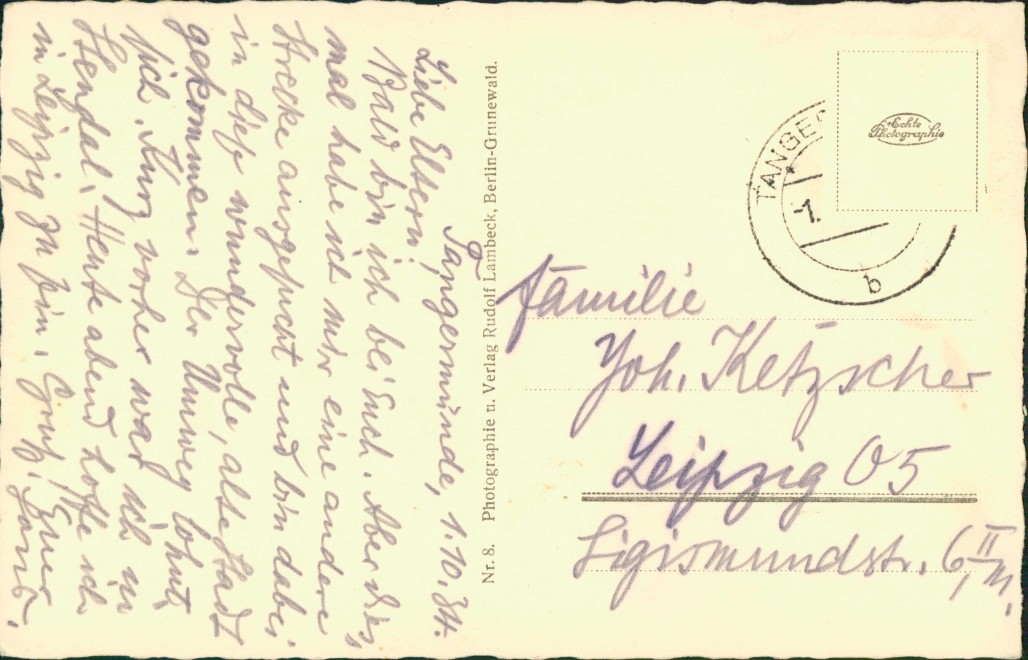 Tangermünde, 1.10.34.
Liebe Eltern!
Bald bin ich bei Euch. Aber dies-
mal habe ich mir eine andere
Strecke ausgesucht und bin dabei
in diese wundervolle, alte Stadt
gekommen. Der Umweg lohnt
sich. Kurz vorher war ich in
Stendal. Heute abend hoffe ich
in Leipzig zu sein. Gruß! Euer
Nr. 8. Photographie u. Verlag Rudolf Lambeck, Berlin-Grunewald.
Echte
Photographie
TANGER
1.
b
Familie
Joh. Ketzscher
Leipzig O5
Sigismundstr. 6, II